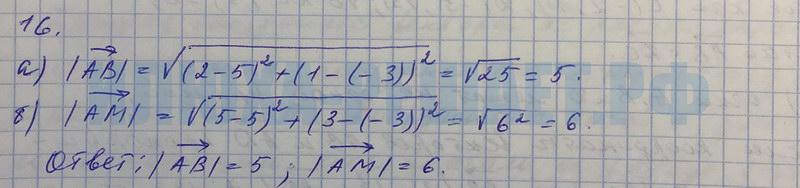 16.
а) |AB→| = √((2-5)²+(1-(-3))²) = √25 = 5.
б) |AM→| = √((5-5)²+(3-(-3))²) = √6² = 6.
Ответ: |AB→| = 5 ; |AM→| = 6.